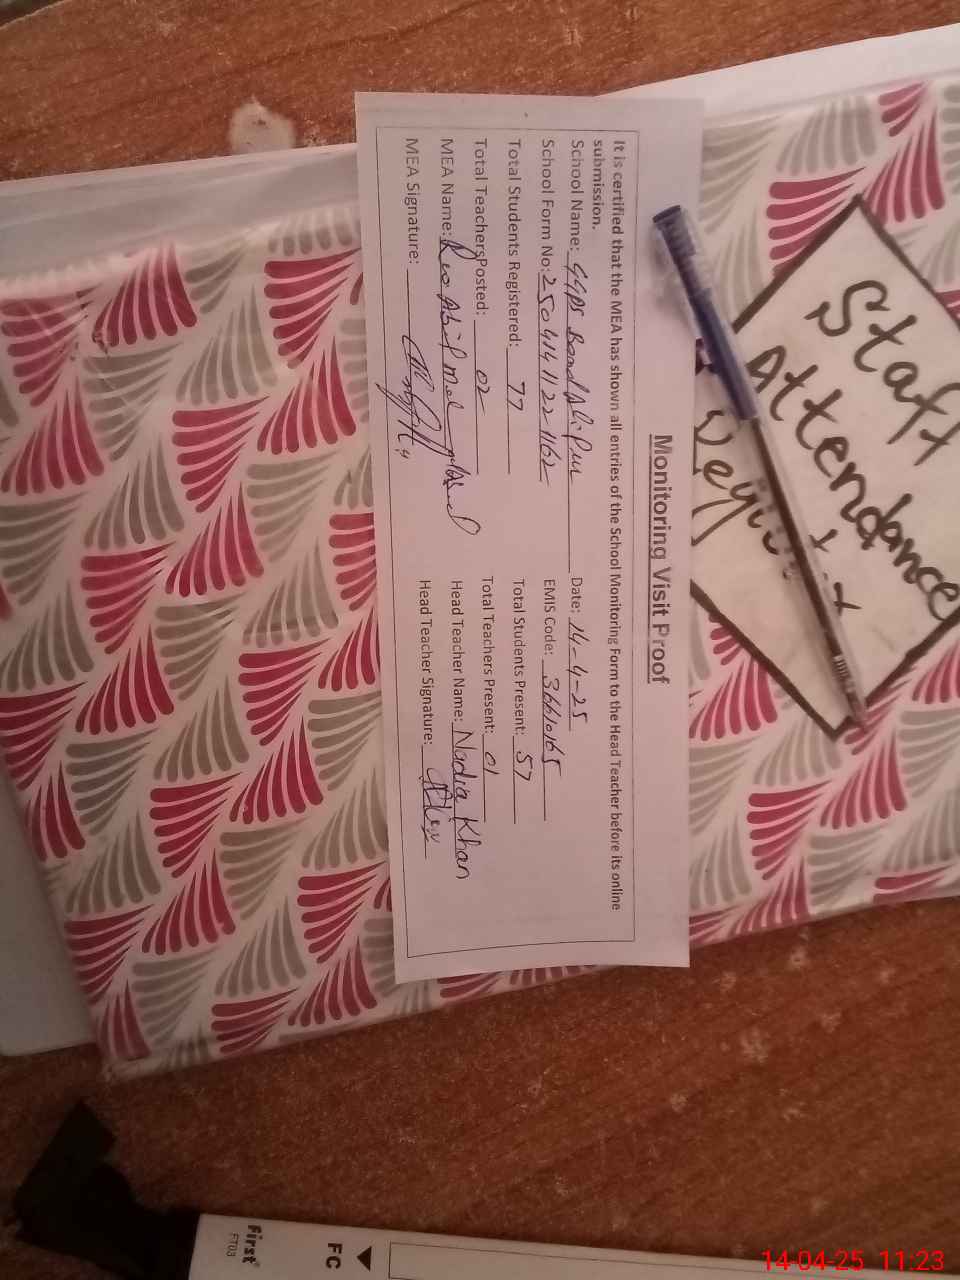 Monitoring Visit Proof
It is certified that the MEA has shown all entries of the School Monitoring Form to the Head Teacher before its online
submission.
School Name: GGPS Band Ali Pur Date: 14-4-25
School Form No: 250414 1122-1162 EMIS Code: 36610165
Total Students Registered: 77 Total Students Present: 57
Total Teachers Posted: 02 Total Teachers Present: 01
MEA Name: Head Teacher Name: Nadia Khan
MEA Signature: Head Teacher Signature:
Staff
Attendance
First
FT03
FC
14-04-25 11:23